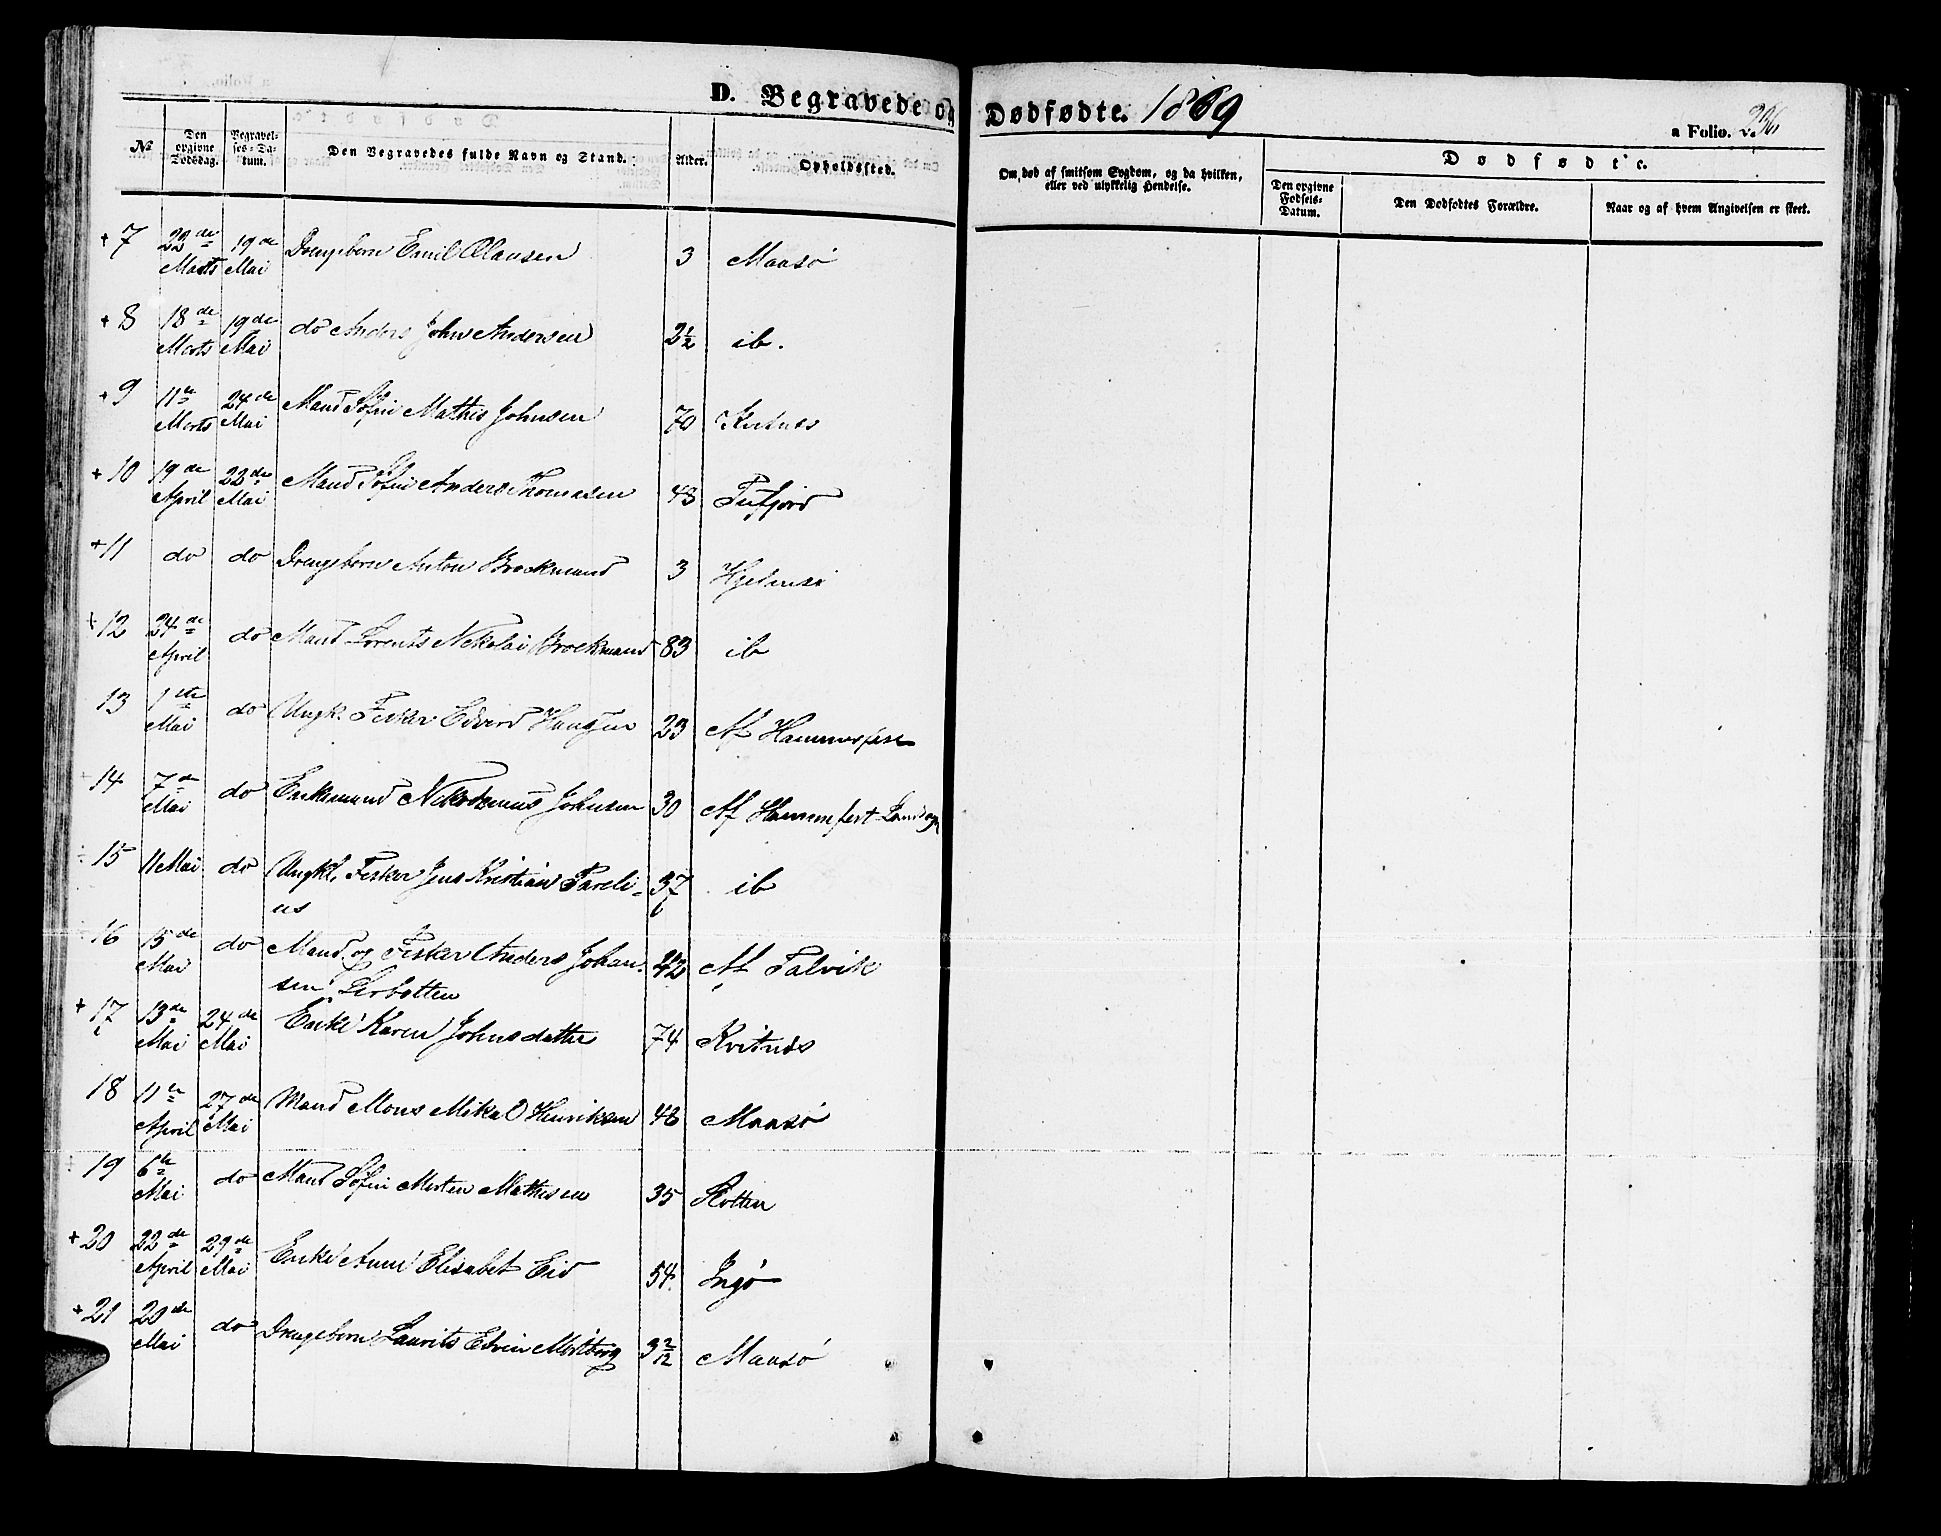 D. Begravede og Dødfødte. 1869
a Folio. 236
№ Den opgivne Dødsdag. Begravelses-Datum. Den Begravedes fulde Navn og Stand. Alder. Opholdssted. Om død af smitsom Sygdom, og da hvilken, eller ved ulykkelig Hendelse. Dødfødte.
Den opgivne Fødsels-Datum. Den Dødfødtes Forældre. Naar og af hvem Angivelsen er skeet.
+ 7 22de Marts 19de Mai Drengebarn Emil Olausen 3 Maasø
+ 8 18de Marts 19de Mai do Anders John Andersen 2½ ib.
+ 9 11te Marts 24de Mai Mand Søfin Mathis Johnsen 70
+ 10 19de April 22de Mai Mand Søfin Anders Thomasen 43 Tufjord
+ 11 do do Drengebarn Anton Brockmand 3 Hjelmsø
+ 12 24de April do Mand Lorents Nikolai Brockmand 83 ib
13 1ste Mai do Ungk. Fisker Edvard Haugen 23 Af Hammerfest
14 7de Mai do Enkemand Nikodemus Johnsen 30 Af Hammerfest Landsogn
15 11te Mai do Ungkl. Fisker Jens Kristian Pareli-
us 37 ib
16 15de Mai do Mand og Fisker Anders Johan-
sen Lerbotten 42 Af Talvik
+ 17 13de Mai 24de Mai Enke Karen Johnsdatter 74 Kvitnes
18 11te April 27de Mai Mand Mons Mikal Henriksen 48 Maasø
19 6te Mai do Mand Søfin Morten Mathisen 35 Slotten
+ 20 22de April 29de Mai Enke Anne Elisabet Eid 54. Ingø
+ 21 20de Mai do Drengebarn Laurits Edvin Moltborg 3 2/12 Maasø